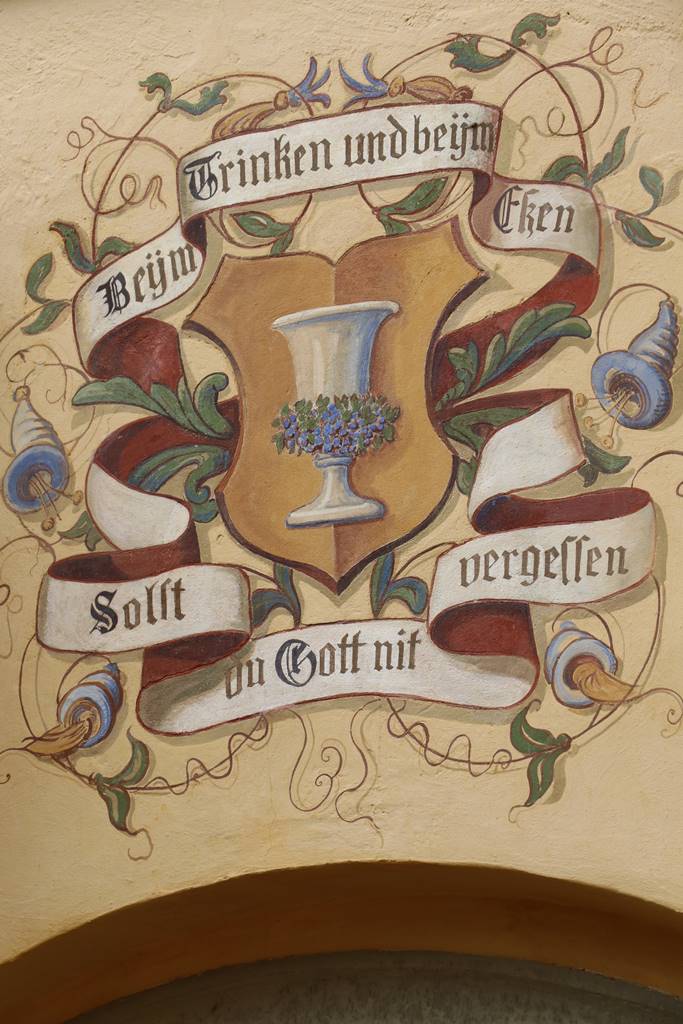 Beÿm
Trinken und beÿm
Eßen
Solſt
du Gott nit
vergeſſen